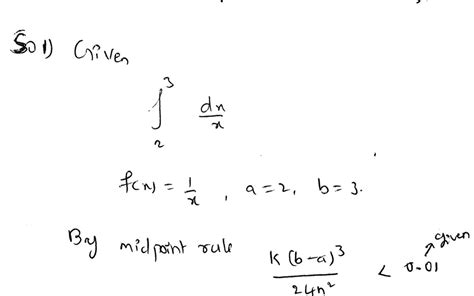 Sol) Given
∫₂³ dx/x
f(x) = 1/x , a=2, b=3.
By midpoint rule K(b-a)³/24n² < 0.01 given